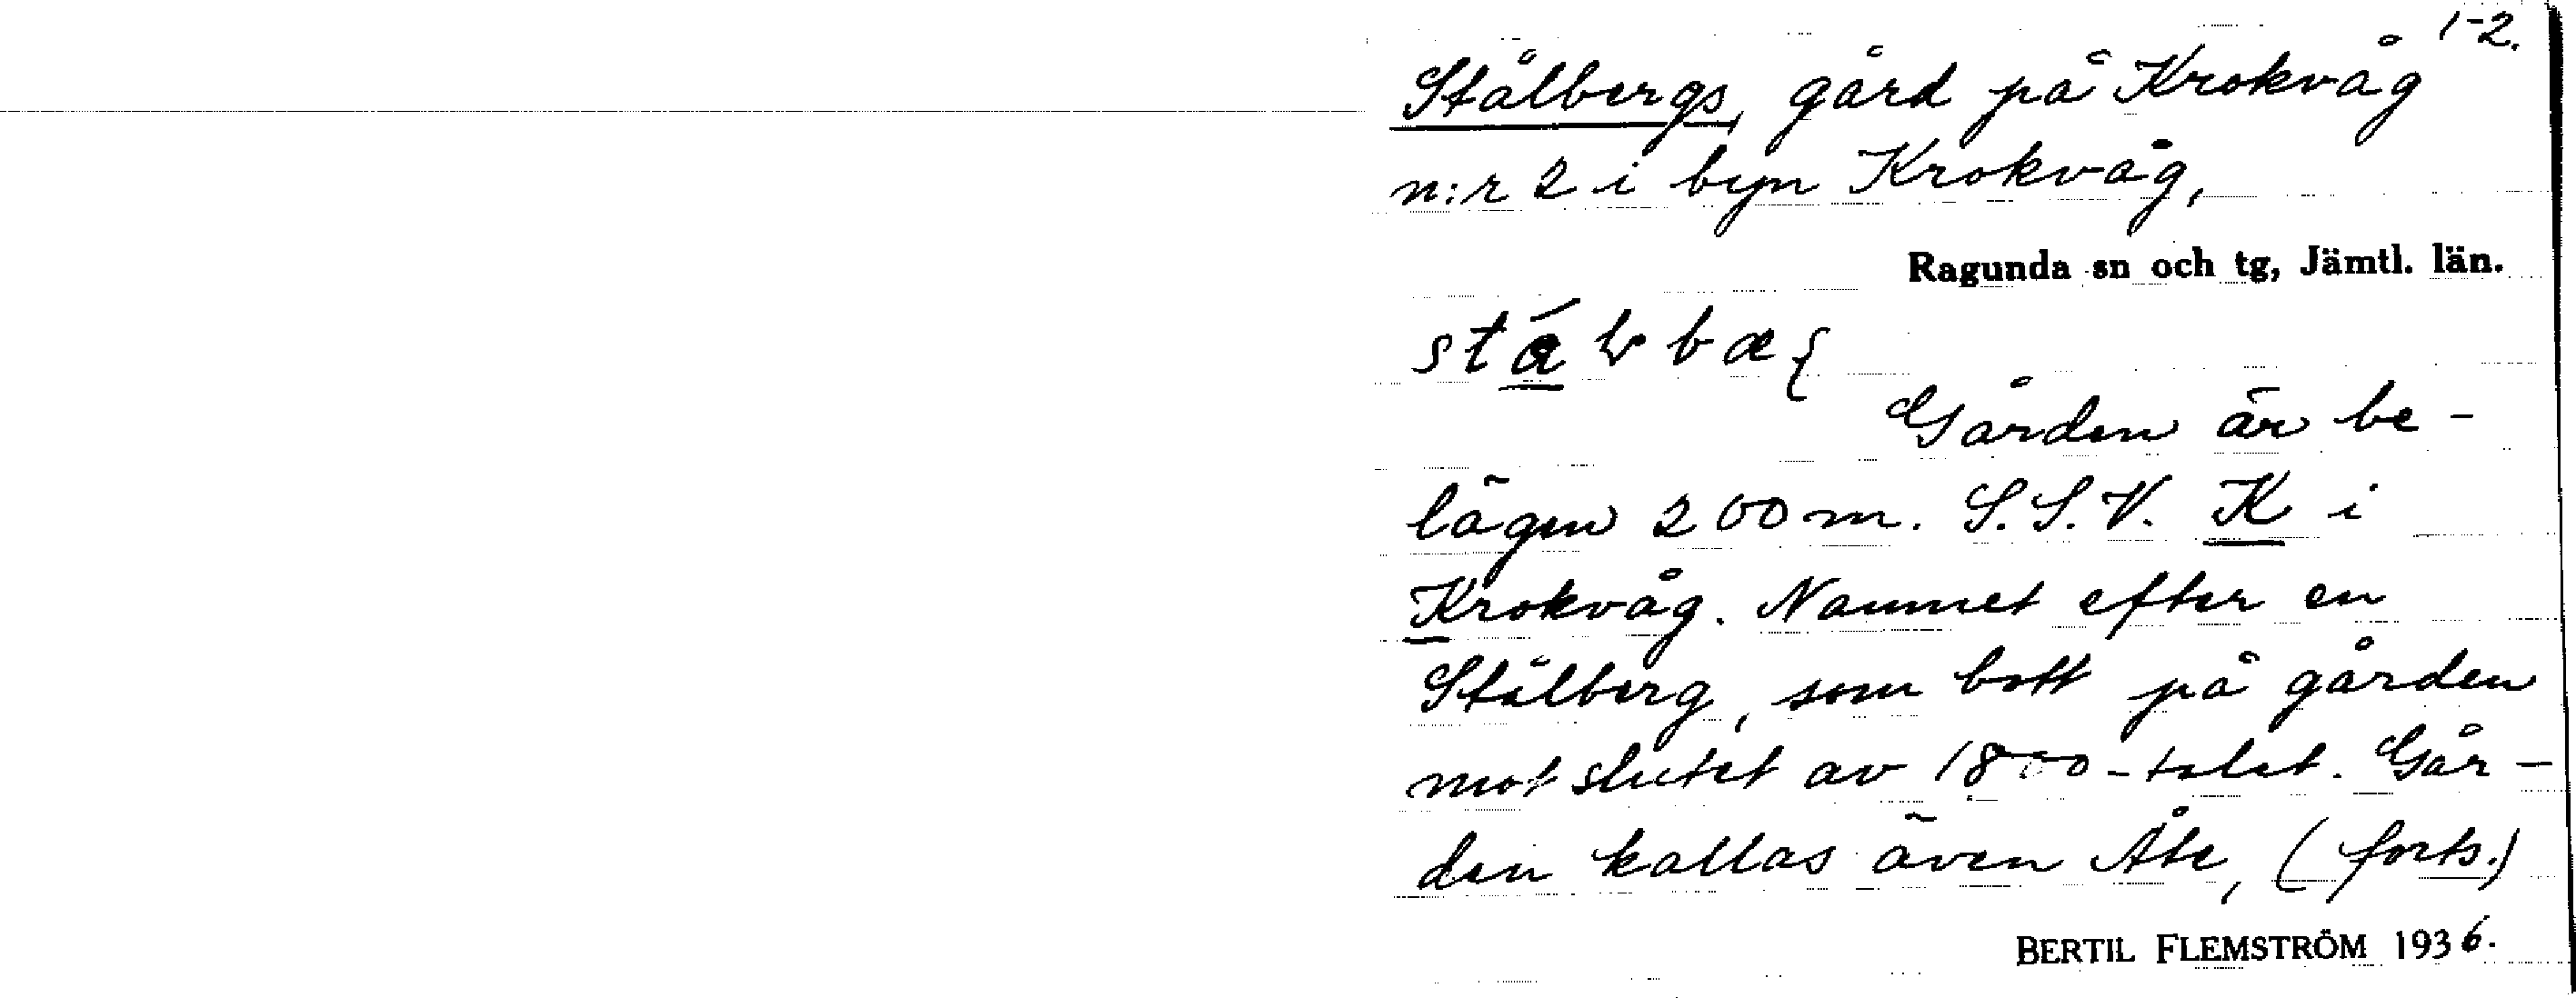 1-2.
Stålbergs, gård på Krokvåg
n:r 2 i byn Krokvåg,
Ragunda sn och tg, Jämtl. län.
Gården är be-
lägen 200 m. S.S.V. K i
Krokvåg. Namnet efter en
Stålberg, som bott på gården
mot slutet av 1800-talet. Går-
den kallas även Åte, (forts.)
BERTIL FLEMSTRÖM 1936.